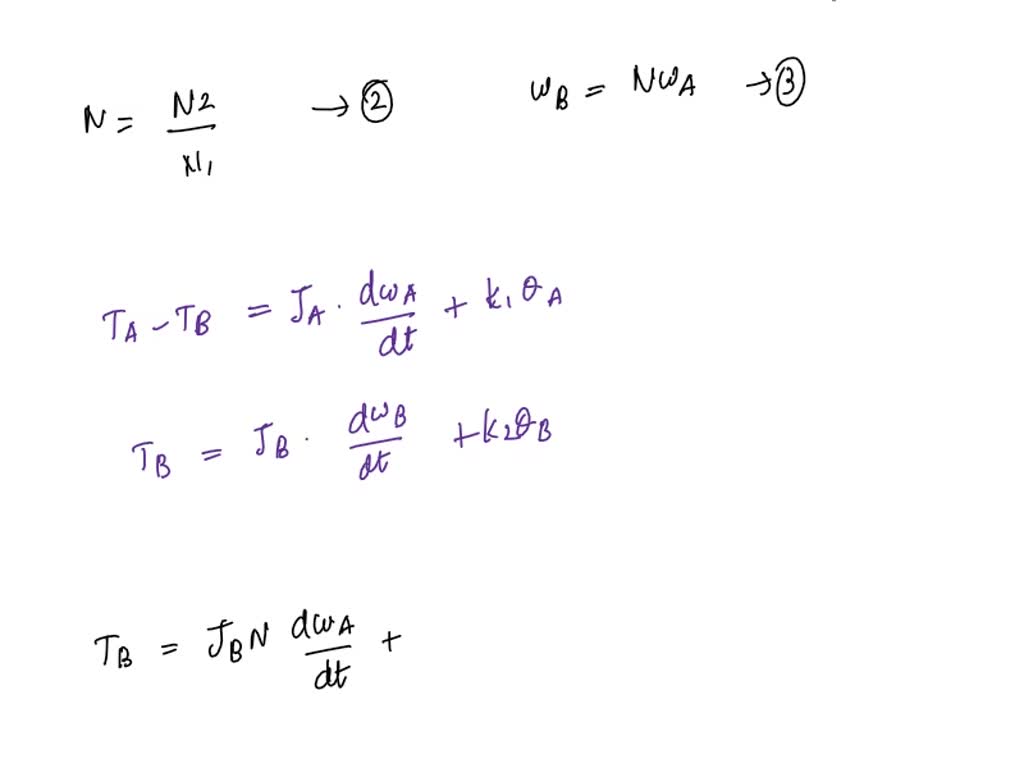 N = N2/N1 → ② ωB = NωA → ③
TA − TB = JA · dωA/dt + k1θA
TB = JB · dωB/dt + k2θB
TB = JBN dωA/dt +